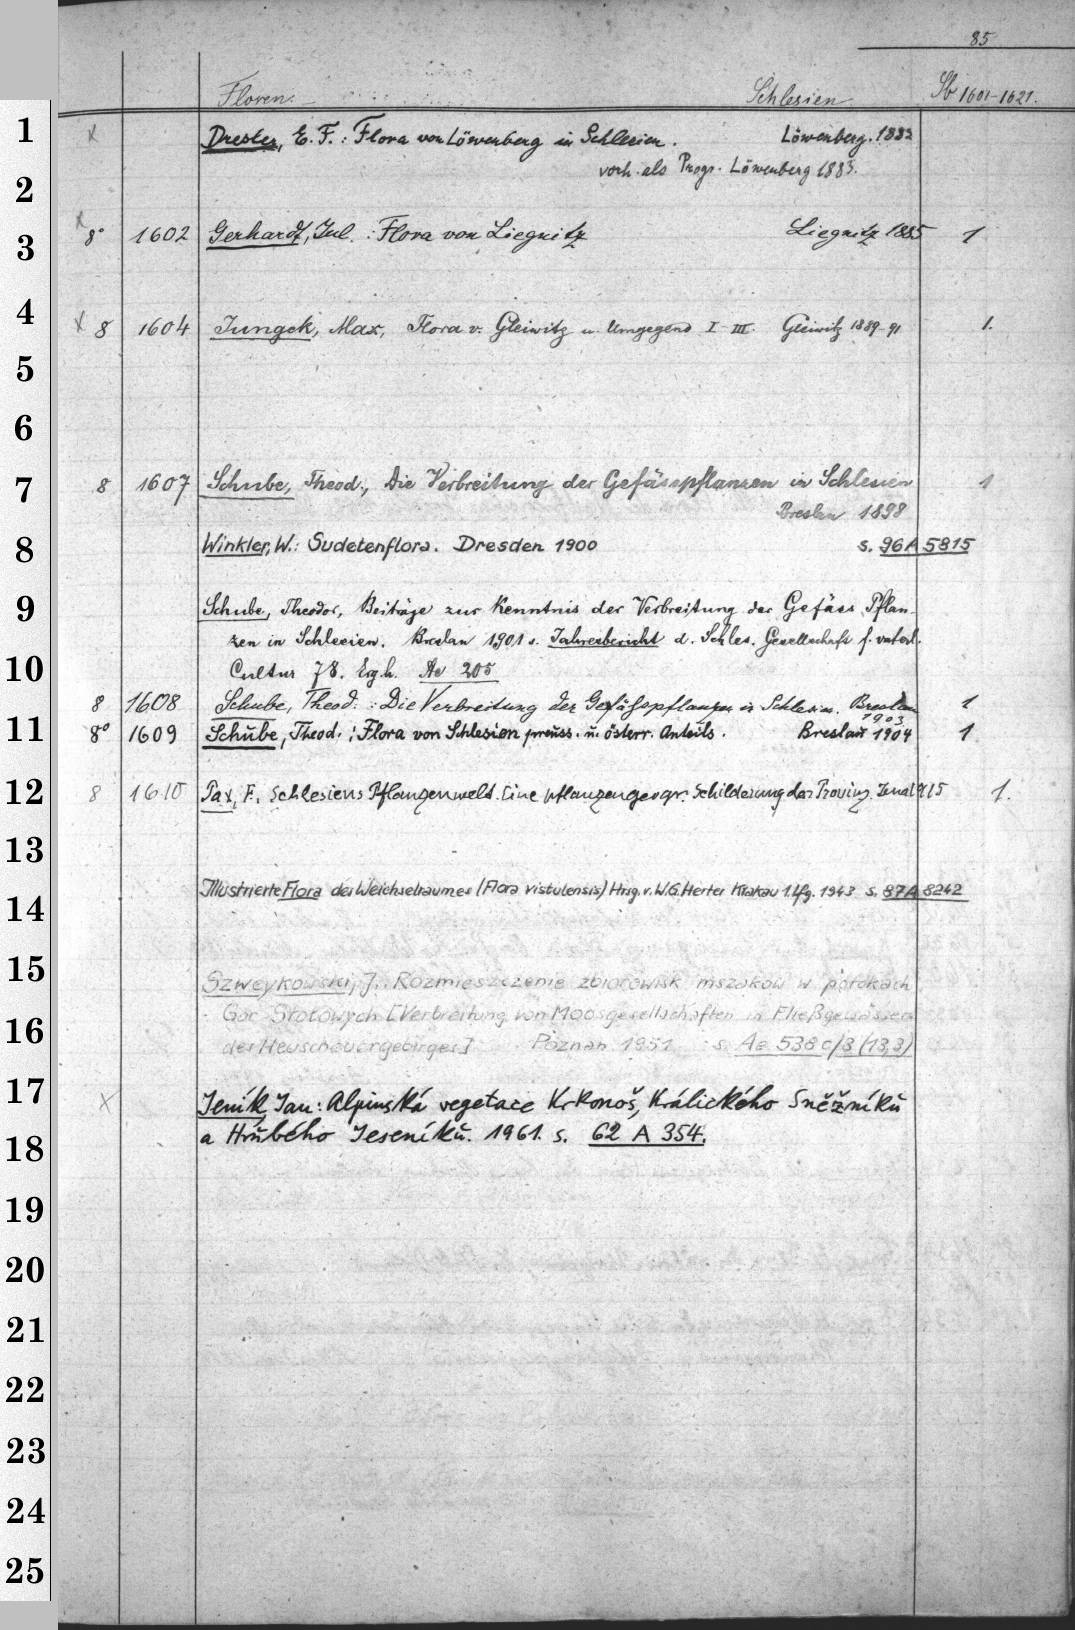 85
Floren. Schlesien Sb 1601-1621.
1
x Drester, E. F.: Flora von Löwenberg in Schlesien. Löwenberg. 1883
vorh. als Progr. Löwenberg 1883.
2
x 8° 1602 Gerhardt, Jul. : Flora von Liegnitz Liegnitz 1885 1
3
4
x 8 1604 Jungck, Max, Flora v. Gleiwitz u. Umgegend I-III. Gleiwitz 1889-91 1.
5
6
7
8 1607 Schube, Theod., Die Verbreitung der Gefässpflanzen in Schlesien 1
Breslau 1898
8
Winkler, W.: Sudetenflora. Dresden 1900 s. 96 A 5815
9
Schube, Theodor, Beiträge zur Kenntnis der Verbreitung der Gefäss Pflan-
zen in Schlesien. Breslau 1901 s. Jahresbericht d. Schles. Gesellschaft f. vaterl.
10
Cultur 78. Erg.h. Ae 205
8 1608 Schube, Theod. : Die Verbreitung der Gefäßpflanzen in Schlesien. Breslau 1903 1
11
8° 1609 Schube, Theod. : Flora von Schlesien preuss. u. österr. Anteils. Breslau 1904 1
12
8 1610 Pax, F. Schlesiens Pflanzenwelt. Eine pflanzengeogr. Schilderung der Provinz. Jena 1915 1.
13
Illustrierte Flora des Weichselraumes (Flora vistulensis) Hrsg. v. W.G. Herter Krakau 1. Lfg. 1943 s. 87 A 8242
14
15
Szweykowski, J.: Rozmieszczenie zbiorowisk mszaków w potokach
Gór Stołowych [Verbreitung von Moosgesellschaften in Fließgewässern
16
des Heuscheuergebirges] Poznań 1951 s. Ae 538 c/3 (13,3)
17
x Jeník Jan: Alpinská vegetace Krkonoš, Králického Sněžníků
a Hrubého Jeseníků. 1961. s. 62 A 354.
18
19
20
21
22
23
24
25